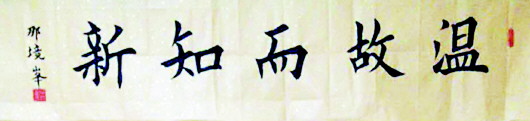 温故而知新
那境峯